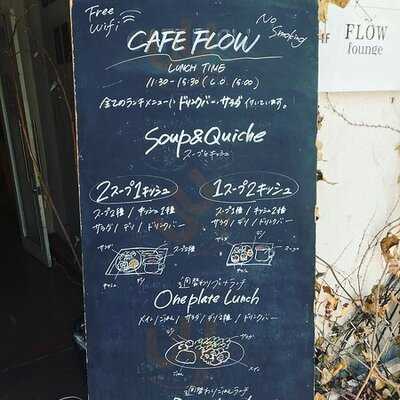 Free
Wifi
No
Smoking
CAFE FLOW
LUNCH TIME
11:30-15:30 (L.O. 15:00)
全てのランチメニューに ドリンクバー・サラダ 付いています。
Soup&Quiche
スープ&キッシュ
2スープ1キッシュ
スープ2種 / キッシュ1種
サラダ / デリ / ドリンクバー
サラダ
スープ2種
キッシュ
デリ
1スープ2キッシュ
スープ1種 / キッシュ2種
サラダ / デリ / ドリンクバー
サラダ
デリ
スープ
キッシュ
週替わりプレートランチ
One plate Lunch
メイン / ごはん / サラダ / デリ2種 / ドリンクバー
デリ
サラダ
ごはん
メイン
週替わり
FLOW
lounge